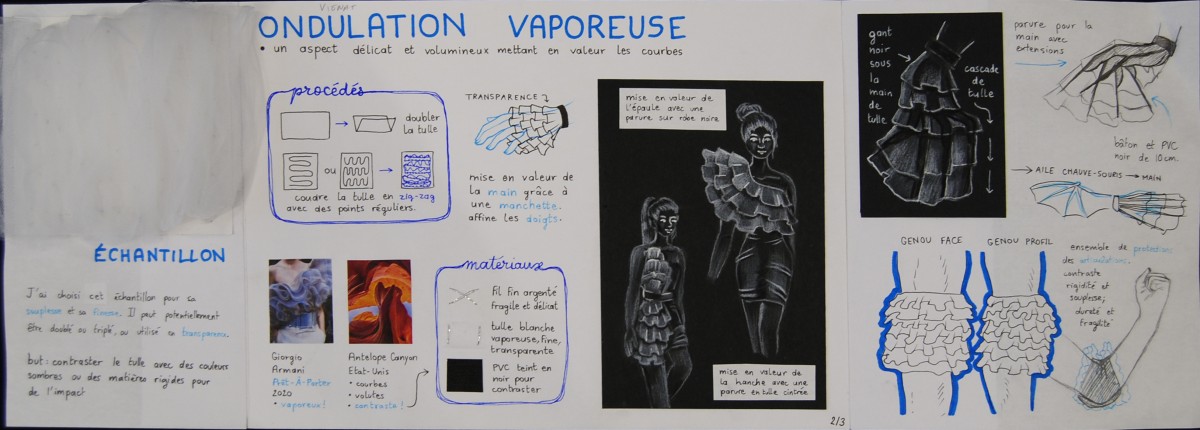 VIENAT
ONDULATION VAPOREUSE
• un aspect délicat et volumineux mettant en valeur les courbes
ÉCHANTILLON
J'ai choisi cet échantillon pour sa
souplesse et sa finesse. Il peut potentiellement
être doublé ou triplé, ou utilisé en transparence.
but : contraster le tulle avec des couleurs
sombres ou des matières rigides pour
de l'impact
procédés
doubler
la tulle
ou
coudre la tulle en zig-zag
avec des points réguliers.
TRANSPARENCE
mise en valeur de
la main grâce à
une manchette.
affine les doigts.
Giorgio
Armani
Prêt-A-Porter
2020
• vaporeux !
Antelope Canyon
Etat-Unis
• courbes
• volutes
• contraste !
matériaux
fil fin argenté
fragile et délicat
tulle blanche
vaporeuse, fine,
transparente
PVC teint en
noir pour
contraster
mise en valeur de
l'épaule avec une
parure sur robe noire
mise en valeur de
la hanche avec une
parure en tulle cintrée
2/3
gant
noir
sous
la
main
de
tulle
cascade
de
tulle
parure pour la
main avec
extensions
bâton et PVC
noir de 10cm.
→ AILE CHAUVE-SOURIS → MAIN
GENOU FACE
GENOU PROFIL
ensemble de protections
des articulations.
contraste
rigidité et
souplesse;
dureté et
fragilité